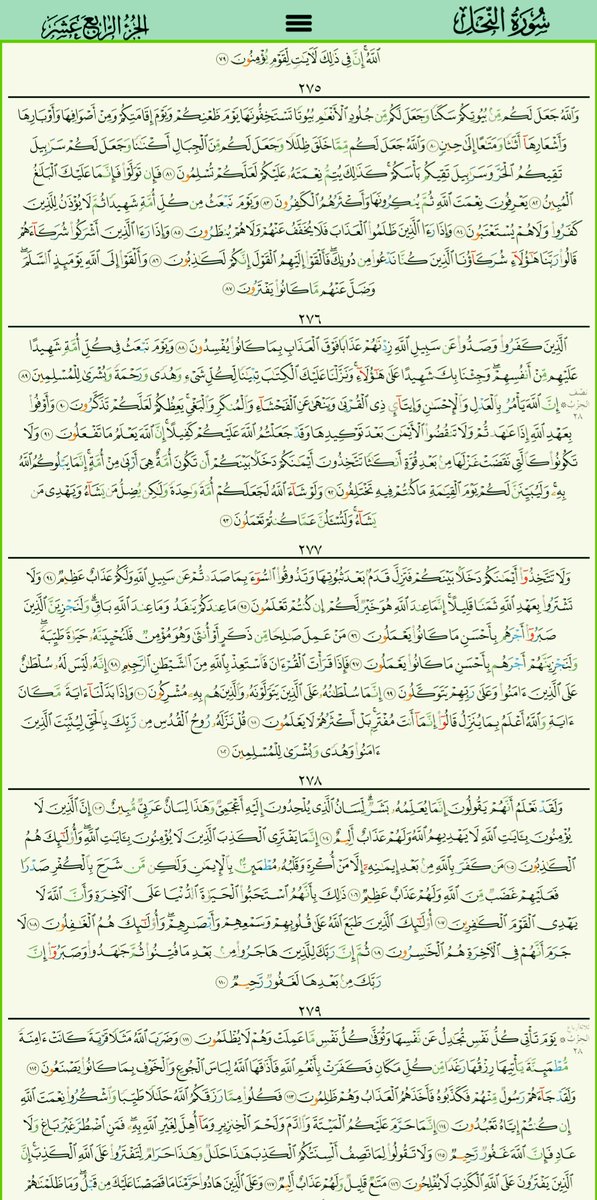 الجزء الرابع عشر
سورة النحل
ٱللَّهُ إِنَّ فِى ذَٰلِكَ لَـَٔايَـٰتٍ لِّقَوْمٍ يُؤْمِنُونَ ٧٩
٢٧٥
وَٱللَّهُ جَعَلَ لَكُم مِّنۢ بُيُوتِكُمْ سَكَنًا وَجَعَلَ لَكُم مِّن جُلُودِ ٱلْأَنْعَـٰمِ بُيُوتًا تَسْتَخِفُّونَهَا يَوْمَ ظَعْنِكُمْ وَيَوْمَ إِقَامَتِكُمْ وَمِنْ أَصْوَافِهَا وَأَوْبَارِهَا
وَأَشْعَارِهَآ أَثَـٰثًا وَمَتَـٰعًا إِلَىٰ حِينٍ ٨٠ وَٱللَّهُ جَعَلَ لَكُم مِّمَّا خَلَقَ ظِلَـٰلًا وَجَعَلَ لَكُم مِّنَ ٱلْجِبَالِ أَكْنَـٰنًا وَجَعَلَ لَكُمْ سَرَٰبِيلَ
تَقِيكُمُ ٱلْحَرَّ وَسَرَٰبِيلَ تَقِيكُم بَأْسَكُمْ كَذَٰلِكَ يُتِمُّ نِعْمَتَهُۥ عَلَيْكُمْ لَعَلَّكُمْ تُسْلِمُونَ ٨١ فَإِن تَوَلَّوْا۟ فَإِنَّمَا عَلَيْكَ ٱلْبَلَـٰغُ
ٱلْمُبِينُ ٨٢ يَعْرِفُونَ نِعْمَتَ ٱللَّهِ ثُمَّ يُنكِرُونَهَا وَأَكْثَرُهُمُ ٱلْكَـٰفِرُونَ ٨٣ وَيَوْمَ نَبْعَثُ مِن كُلِّ أُمَّةٍ شَهِيدًا ثُمَّ لَا يُؤْذَنُ لِلَّذِينَ
كَفَرُوا۟ وَلَا هُمْ يُسْتَعْتَبُونَ ٨٤ وَإِذَا رَءَا ٱلَّذِينَ ظَلَمُوا۟ ٱلْعَذَابَ فَلَا يُخَفَّفُ عَنْهُمْ وَلَا هُمْ يُنظَرُونَ ٨٥ وَإِذَا رَءَا ٱلَّذِينَ أَشْرَكُوا۟ شُرَكَآءَهُمْ
قَالُوا۟ رَبَّنَا هَـٰٓؤُلَآءِ شُرَكَآؤُنَا ٱلَّذِينَ كُنَّا نَدْعُوا۟ مِن دُونِكَ فَأَلْقَوْا۟ إِلَيْهِمُ ٱلْقَوْلَ إِنَّكُمْ لَكَـٰذِبُونَ ٨٦ وَأَلْقَوْا۟ إِلَى ٱللَّهِ يَوْمَئِذٍ ٱلسَّلَمَ
وَضَلَّ عَنْهُم مَّا كَانُوا۟ يَفْتَرُونَ ٨٧
٢٧٦
ٱلَّذِينَ كَفَرُوا۟ وَصَدُّوا۟ عَن سَبِيلِ ٱللَّهِ زِدْنَـٰهُمْ عَذَابًا فَوْقَ ٱلْعَذَابِ بِمَا كَانُوا۟ يُفْسِدُونَ ٨٨ وَيَوْمَ نَبْعَثُ فِى كُلِّ أُمَّةٍ شَهِيدًا
عَلَيْهِم مِّنْ أَنفُسِهِمْ وَجِئْنَا بِكَ شَهِيدًا عَلَىٰ هَـٰٓؤُلَآءِ وَنَزَّلْنَا عَلَيْكَ ٱلْكِتَـٰبَ تِبْيَـٰنًا لِّكُلِّ شَىْءٍ وَهُدًى وَرَحْمَةً وَبُشْرَىٰ لِلْمُسْلِمِينَ ٨٩
نصف الحزب ٢٨
إِنَّ ٱللَّهَ يَأْمُرُ بِٱلْعَدْلِ وَٱلْإِحْسَـٰنِ وَإِيتَآئِ ذِى ٱلْقُرْبَىٰ وَيَنْهَىٰ عَنِ ٱلْفَحْشَآءِ وَٱلْمُنكَرِ وَٱلْبَغْىِ يَعِظُكُمْ لَعَلَّكُمْ تَذَكَّرُونَ ٩٠ وَأَوْفُوا۟
بِعَهْدِ ٱللَّهِ إِذَا عَـٰهَدتُّمْ وَلَا تَنقُضُوا۟ ٱلْأَيْمَـٰنَ بَعْدَ تَوْكِيدِهَا وَقَدْ جَعَلْتُمُ ٱللَّهَ عَلَيْكُمْ كَفِيلًا إِنَّ ٱللَّهَ يَعْلَمُ مَا تَفْعَلُونَ ٩١ وَلَا
تَكُونُوا۟ كَٱلَّتِى نَقَضَتْ غَزْلَهَا مِنۢ بَعْدِ قُوَّةٍ أَنكَـٰثًا تَتَّخِذُونَ أَيْمَـٰنَكُمْ دَخَلًۢا بَيْنَكُمْ أَن تَكُونَ أُمَّةٌ هِىَ أَرْبَىٰ مِنْ أُمَّةٍ إِنَّمَا يَبْلُوكُمُ ٱللَّهُ
بِهِۦ وَلَيُبَيِّنَنَّ لَكُمْ يَوْمَ ٱلْقِيَـٰمَةِ مَا كُنتُمْ فِيهِ تَخْتَلِفُونَ ٩٢ وَلَوْ شَآءَ ٱللَّهُ لَجَعَلَكُمْ أُمَّةً وَٰحِدَةً وَلَـٰكِن يُضِلُّ مَن يَشَآءُ وَيَهْدِى مَن
يَشَآءُ وَلَتُسْـَٔلُنَّ عَمَّا كُنتُمْ تَعْمَلُونَ ٩٣
٢٧٧
وَلَا تَتَّخِذُوٓا۟ أَيْمَـٰنَكُمْ دَخَلًۢا بَيْنَكُمْ فَتَزِلَّ قَدَمٌۢ بَعْدَ ثُبُوتِهَا وَتَذُوقُوا۟ ٱلسُّوٓءَ بِمَا صَدَدتُّمْ عَن سَبِيلِ ٱللَّهِ وَلَكُمْ عَذَابٌ عَظِيمٌ ٩٤ وَلَا
تَشْتَرُوا۟ بِعَهْدِ ٱللَّهِ ثَمَنًا قَلِيلًا إِنَّمَا عِندَ ٱللَّهِ هُوَ خَيْرٌ لَّكُمْ إِن كُنتُمْ تَعْلَمُونَ ٩٥ مَا عِندَكُمْ يَنفَدُ وَمَا عِندَ ٱللَّهِ بَاقٍ وَلَنَجْزِيَنَّ ٱلَّذِينَ
صَبَرُوٓا۟ أَجْرَهُم بِأَحْسَنِ مَا كَانُوا۟ يَعْمَلُونَ ٩٦ مَنْ عَمِلَ صَـٰلِحًا مِّن ذَكَرٍ أَوْ أُنثَىٰ وَهُوَ مُؤْمِنٌ فَلَنُحْيِيَنَّهُۥ حَيَوٰةً طَيِّبَةً
وَلَنَجْزِيَنَّهُمْ أَجْرَهُم بِأَحْسَنِ مَا كَانُوا۟ يَعْمَلُونَ ٩٧ فَإِذَا قَرَأْتَ ٱلْقُرْءَانَ فَٱسْتَعِذْ بِٱللَّهِ مِنَ ٱلشَّيْطَـٰنِ ٱلرَّجِيمِ ٩٨ إِنَّهُۥ لَيْسَ لَهُۥ سُلْطَـٰنٌ
عَلَى ٱلَّذِينَ ءَامَنُوا۟ وَعَلَىٰ رَبِّهِمْ يَتَوَكَّلُونَ ٩٩ إِنَّمَا سُلْطَـٰنُهُۥ عَلَى ٱلَّذِينَ يَتَوَلَّوْنَهُۥ وَٱلَّذِينَ هُم بِهِۦ مُشْرِكُونَ ١٠٠ وَإِذَا بَدَّلْنَآ ءَايَةً مَّكَانَ
ءَايَةٍ وَٱللَّهُ أَعْلَمُ بِمَا يُنَزِّلُ قَالُوٓا۟ إِنَّمَآ أَنتَ مُفْتَرٍۭ بَلْ أَكْثَرُهُمْ لَا يَعْلَمُونَ ١٠١ قُلْ نَزَّلَهُۥ رُوحُ ٱلْقُدُسِ مِن رَّبِّكَ بِٱلْحَقِّ لِيُثَبِّتَ ٱلَّذِينَ
ءَامَنُوا۟ وَهُدًى وَبُشْرَىٰ لِلْمُسْلِمِينَ ١٠٢
٢٧٨
وَلَقَدْ نَعْلَمُ أَنَّهُمْ يَقُولُونَ إِنَّمَا يُعَلِّمُهُۥ بَشَرٌ لِّسَانُ ٱلَّذِى يُلْحِدُونَ إِلَيْهِ أَعْجَمِىٌّ وَهَـٰذَا لِسَانٌ عَرَبِىٌّ مُّبِينٌ ١٠٣ إِنَّ ٱلَّذِينَ لَا
يُؤْمِنُونَ بِـَٔايَـٰتِ ٱللَّهِ لَا يَهْدِيهِمُ ٱللَّهُ وَلَهُمْ عَذَابٌ أَلِيمٌ ١٠٤ إِنَّمَا يَفْتَرِى ٱلْكَذِبَ ٱلَّذِينَ لَا يُؤْمِنُونَ بِـَٔايَـٰتِ ٱللَّهِ وَأُو۟لَـٰٓئِكَ هُمُ
ٱلْكَـٰذِبُونَ ١٠٥ مَن كَفَرَ بِٱللَّهِ مِنۢ بَعْدِ إِيمَـٰنِهِۦٓ إِلَّا مَنْ أُكْرِهَ وَقَلْبُهُۥ مُطْمَئِنٌّۢ بِٱلْإِيمَـٰنِ وَلَـٰكِن مَّن شَرَحَ بِٱلْكُفْرِ صَدْرًا
فَعَلَيْهِمْ غَضَبٌ مِّنَ ٱللَّهِ وَلَهُمْ عَذَابٌ عَظِيمٌ ١٠٦ ذَٰلِكَ بِأَنَّهُمُ ٱسْتَحَبُّوا۟ ٱلْحَيَوٰةَ ٱلدُّنْيَا عَلَى ٱلْـَٔاخِرَةِ وَأَنَّ ٱللَّهَ لَا
يَهْدِى ٱلْقَوْمَ ٱلْكَـٰفِرِينَ ١٠٧ أُو۟لَـٰٓئِكَ ٱلَّذِينَ طَبَعَ ٱللَّهُ عَلَىٰ قُلُوبِهِمْ وَسَمْعِهِمْ وَأَبْصَـٰرِهِمْ وَأُو۟لَـٰٓئِكَ هُمُ ٱلْغَـٰفِلُونَ ١٠٨ لَا
جَرَمَ أَنَّهُمْ فِى ٱلْـَٔاخِرَةِ هُمُ ٱلْخَـٰسِرُونَ ١٠٩ ثُمَّ إِنَّ رَبَّكَ لِلَّذِينَ هَاجَرُوا۟ مِنۢ بَعْدِ مَا فُتِنُوا۟ ثُمَّ جَـٰهَدُوا۟ وَصَبَرُوٓا۟ إِنَّ
رَبَّكَ مِنۢ بَعْدِهَا لَغَفُورٌ رَّحِيمٌ ١١٠
٢٧٩
ثلاثة أرباع الحزب ٢٨
يَوْمَ تَأْتِى كُلُّ نَفْسٍ تُجَـٰدِلُ عَن نَّفْسِهَا وَتُوَفَّىٰ كُلُّ نَفْسٍ مَّا عَمِلَتْ وَهُمْ لَا يُظْلَمُونَ ١١١ وَضَرَبَ ٱللَّهُ مَثَلًا قَرْيَةً كَانَتْ ءَامِنَةً
مُّطْمَئِنَّةً يَأْتِيهَا رِزْقُهَا رَغَدًا مِّن كُلِّ مَكَانٍ فَكَفَرَتْ بِأَنْعُمِ ٱللَّهِ فَأَذَٰقَهَا ٱللَّهُ لِبَاسَ ٱلْجُوعِ وَٱلْخَوْفِ بِمَا كَانُوا۟ يَصْنَعُونَ ١١٢
وَلَقَدْ جَآءَهُمْ رَسُولٌ مِّنْهُمْ فَكَذَّبُوهُ فَأَخَذَهُمُ ٱلْعَذَابُ وَهُمْ ظَـٰلِمُونَ ١١٣ فَكُلُوا۟ مِمَّا رَزَقَكُمُ ٱللَّهُ حَلَـٰلًا طَيِّبًا وَٱشْكُرُوا۟ نِعْمَتَ ٱللَّهِ
إِن كُنتُمْ إِيَّاهُ تَعْبُدُونَ ١١٤ إِنَّمَا حَرَّمَ عَلَيْكُمُ ٱلْمَيْتَةَ وَٱلدَّمَ وَلَحْمَ ٱلْخِنزِيرِ وَمَآ أُهِلَّ لِغَيْرِ ٱللَّهِ بِهِۦ فَمَنِ ٱضْطُرَّ غَيْرَ بَاغٍ وَلَا
عَادٍ فَإِنَّ ٱللَّهَ غَفُورٌ رَّحِيمٌ ١١٥ وَلَا تَقُولُوا۟ لِمَا تَصِفُ أَلْسِنَتُكُمُ ٱلْكَذِبَ هَـٰذَا حَلَـٰلٌ وَهَـٰذَا حَرَامٌ لِّتَفْتَرُوا۟ عَلَى ٱللَّهِ ٱلْكَذِبَ إِنَّ
ٱلَّذِينَ يَفْتَرُونَ عَلَى ٱللَّهِ ٱلْكَذِبَ لَا يُفْلِحُونَ ١١٦ مَتَـٰعٌ قَلِيلٌ وَلَهُمْ عَذَابٌ أَلِيمٌ ١١٧ وَعَلَى ٱلَّذِينَ هَادُوا۟ حَرَّمْنَا مَا قَصَصْنَا عَلَيْكَ مِن قَبْلُ وَمَا ظَلَمْنَـٰهُمْ